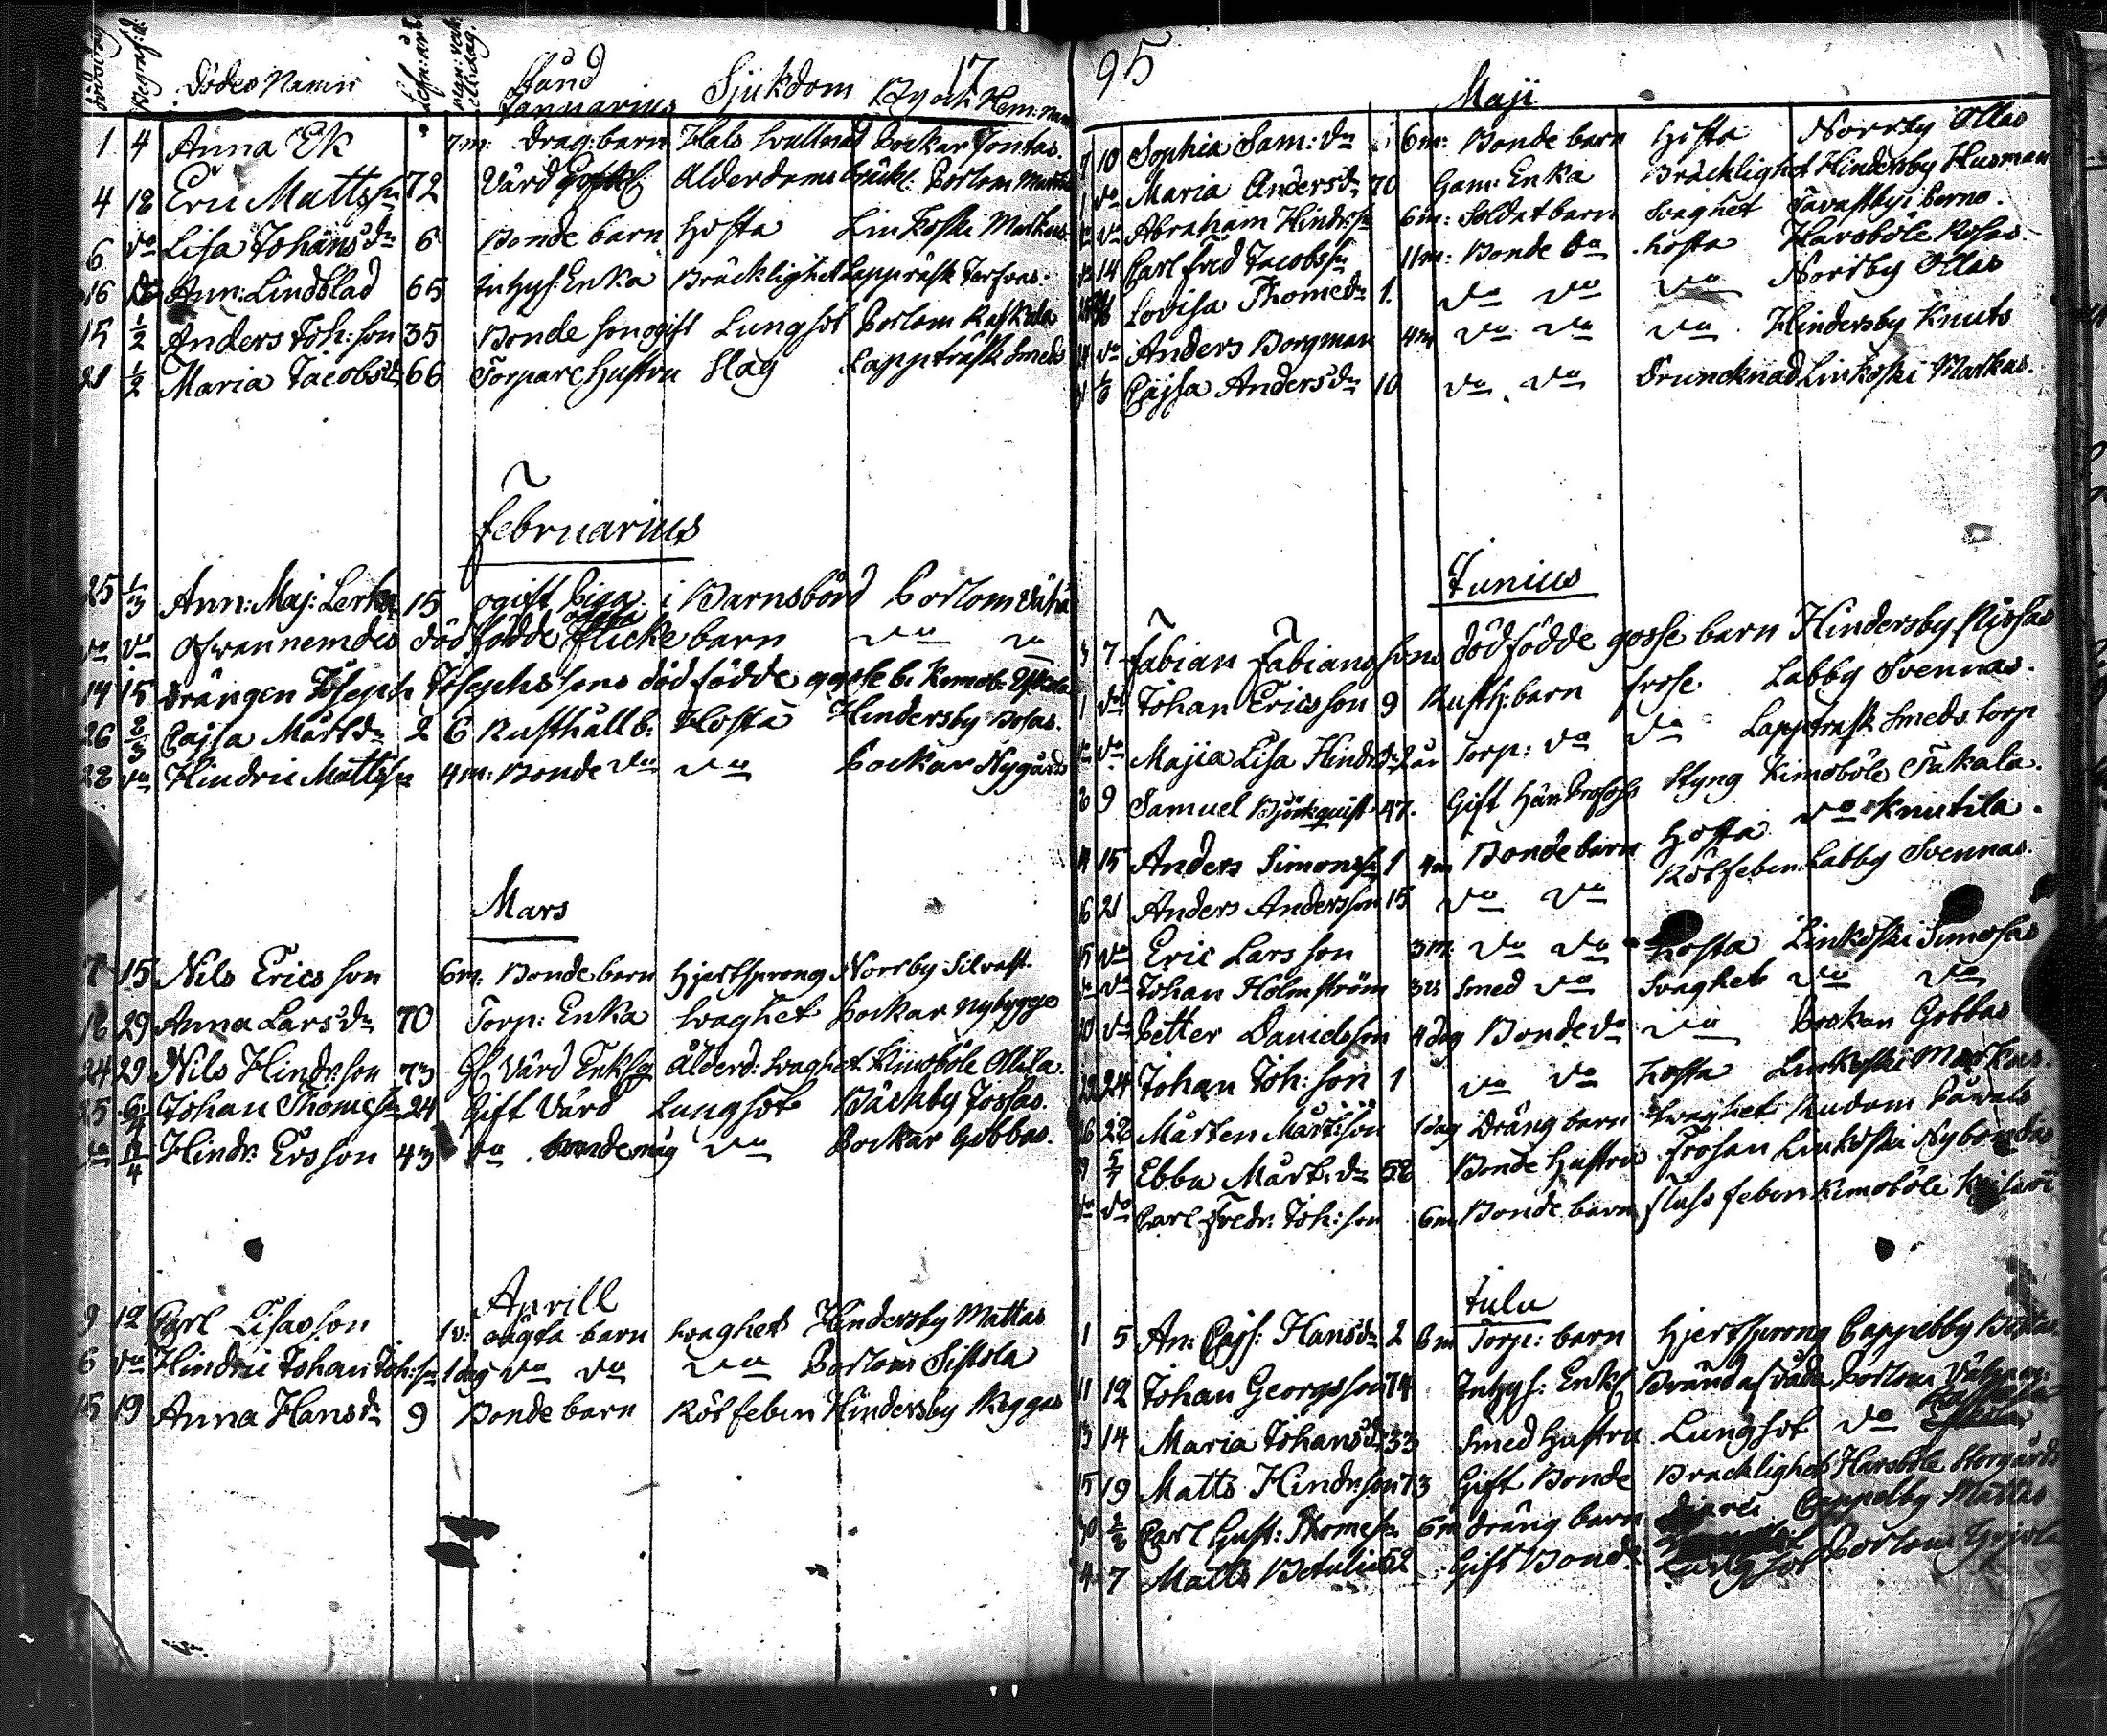 Dödes Namn Stånd Sjukdom By och Hem: namn 17
Januarius
1 4 Anna Ek 7m: Drag: barn Hals svullnad Bockar Jontas.
4 18 Eric Mattss:n 72 Vård Ålderdoms bräckl: Porlom Martis
6 do Lisa Johansdr 6 Bonde barn Hosta Linkoski Markus
16 Ann: Lindblad 65 Inhys: Enka Bräcklighet Lappträsk
15 1/2 Anders Joh: son 35 Bonde son ogift Lungsot Porlom Raskala
21 1/2 Maria Jacobsdr 66 Torpare Hustru Slag Lappträsk Smeds
Februarius
25 1/3 Ann: Maj: Lerk 15 ogift Piga i Barnsbörd Porlom
do do Ofvannemdes dödfödde oägta flicke barn do do
14 15 Drängen Joseph Josephssons dödfödde gosse b. Kimob:
26 8/3 Cajsa Mårtdr 2 6 Rusthåll b: Hosta Hindersby Bosas.
28 do Hindric Mattss:n 4m: Bonde do do Bockar Nygårds
Mars
7 15 Nils Ericsson 6m. Bonde barn Hjertsprong Norrby Silvast.
18 29 Anna Larsdr 70 Torp: Enka Svaghet Bockar Nybygge
24 29 Nils Hindr:son 73 Gl Vård Enkl Ålderd: Svaghet Kimoböle Ollila.
25 6/4 Johan Thomes:n 24 Gift Vård Lungsot Bäckby Jossas.
do Hindr: Ersson 43 do Bondemåg do Bockar Gobbas.
Aprill
9 12 Carl Lisasson 1v: oägta barn Svaghet Hindersby Mattas
6 do Hindric Johan Joh:s:n 1dag do do do Porlom Sissola
15 19 Anna Hansdr 9 Bonde barn Rötfeber Hindersby Reggas
95
Maji
7 10 Sophia Sam: dr 6m: Bonde barn Hosta Norrby Ollas
do Maria Andersdr 70 Gam: Enka Bräcklighet Hindersby Husman
do Abraham Hindrs:n 6m: Soldat barn Svaghet Tavastby i Perno.
12 14 Carl Fred Jacobss:n 11m: Bonde do Hosta Harsböle Rosas
Lovisa Thomedr 1. do do do Norrby Ollas
do Anders Borgman 4m do do do Hindersby Knuts
Cajsa Andersdr 10 do do Druncknad Linkoski Markus.
Junius
3 7 Fabian Fabianssons dödfödde gosse barn Hindersby Nissas
1 do Johan Ericsson 9 Rusth: barn Frosse Labby Svennas.
do Majia Lisa Hindrsdr 2 år Torp: do do Lappträsk Smeds torp
8 9 Samuel Björkquist 47. Gift Styng Kimoböle Tukala.
11 15 Anders Simonss:n 1 4m Bonde barn Hosta do Knutila.
6 21 Anders Andersson 15 do do Rötfeber Labby Svennas.
15 do Eric Larsson 3m: do do Hosta Linkoski Simosas
do Johan Holmström 3v Smed do Svaghet do do
20 do Petter Danielsson 4dag Bonde do do Bockar Gobbas
22 24 Johan Joh: son 1 do do Hosta Linkoski Markus.
26 28 Mårten Mårt:son 1dag Dräng barn Svaghet Rudom Påwals
5/7 Ebba Mårt: dr 58 Bonde Hustru Frossan Linkoski Nybondas
do do Carl Fredr: Joh: son 6m Bonde barn Fluss feber Kimoböle
Julii
1 5 An: Cajs: Hansdr 2 6m Torp: barn Hjertsprong Cappelby
11 12 Johan Georgsson 74 Inhys: Enkl Brända Porlom
13 14 Maria Johansdr 33 Smed Hustru Lungsot do
15 19 Matts Hindr:son 73 Gift Bonde Bräcklighet Harsböle Storgårds
30 2/8 Carl Gust: Thomes:n 6m Dräng barn Cappelby Mattas
4 7 Matts Betulin 52 Gift Bonde Lungsot Porlom